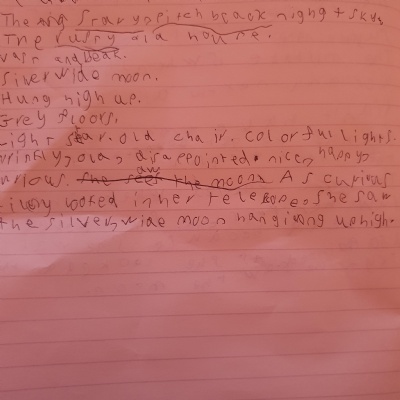 The scary, pitch black night sky,
The rusty old house.
and Beak.
Silver wide moon.
Hung high up.
Grey floors.
Light star. old chair. colorful lights.
old, disappointed. nice, happy,
the moon A s curious
looked in her telescope. She saw
the silver, wide moon hanging up high.